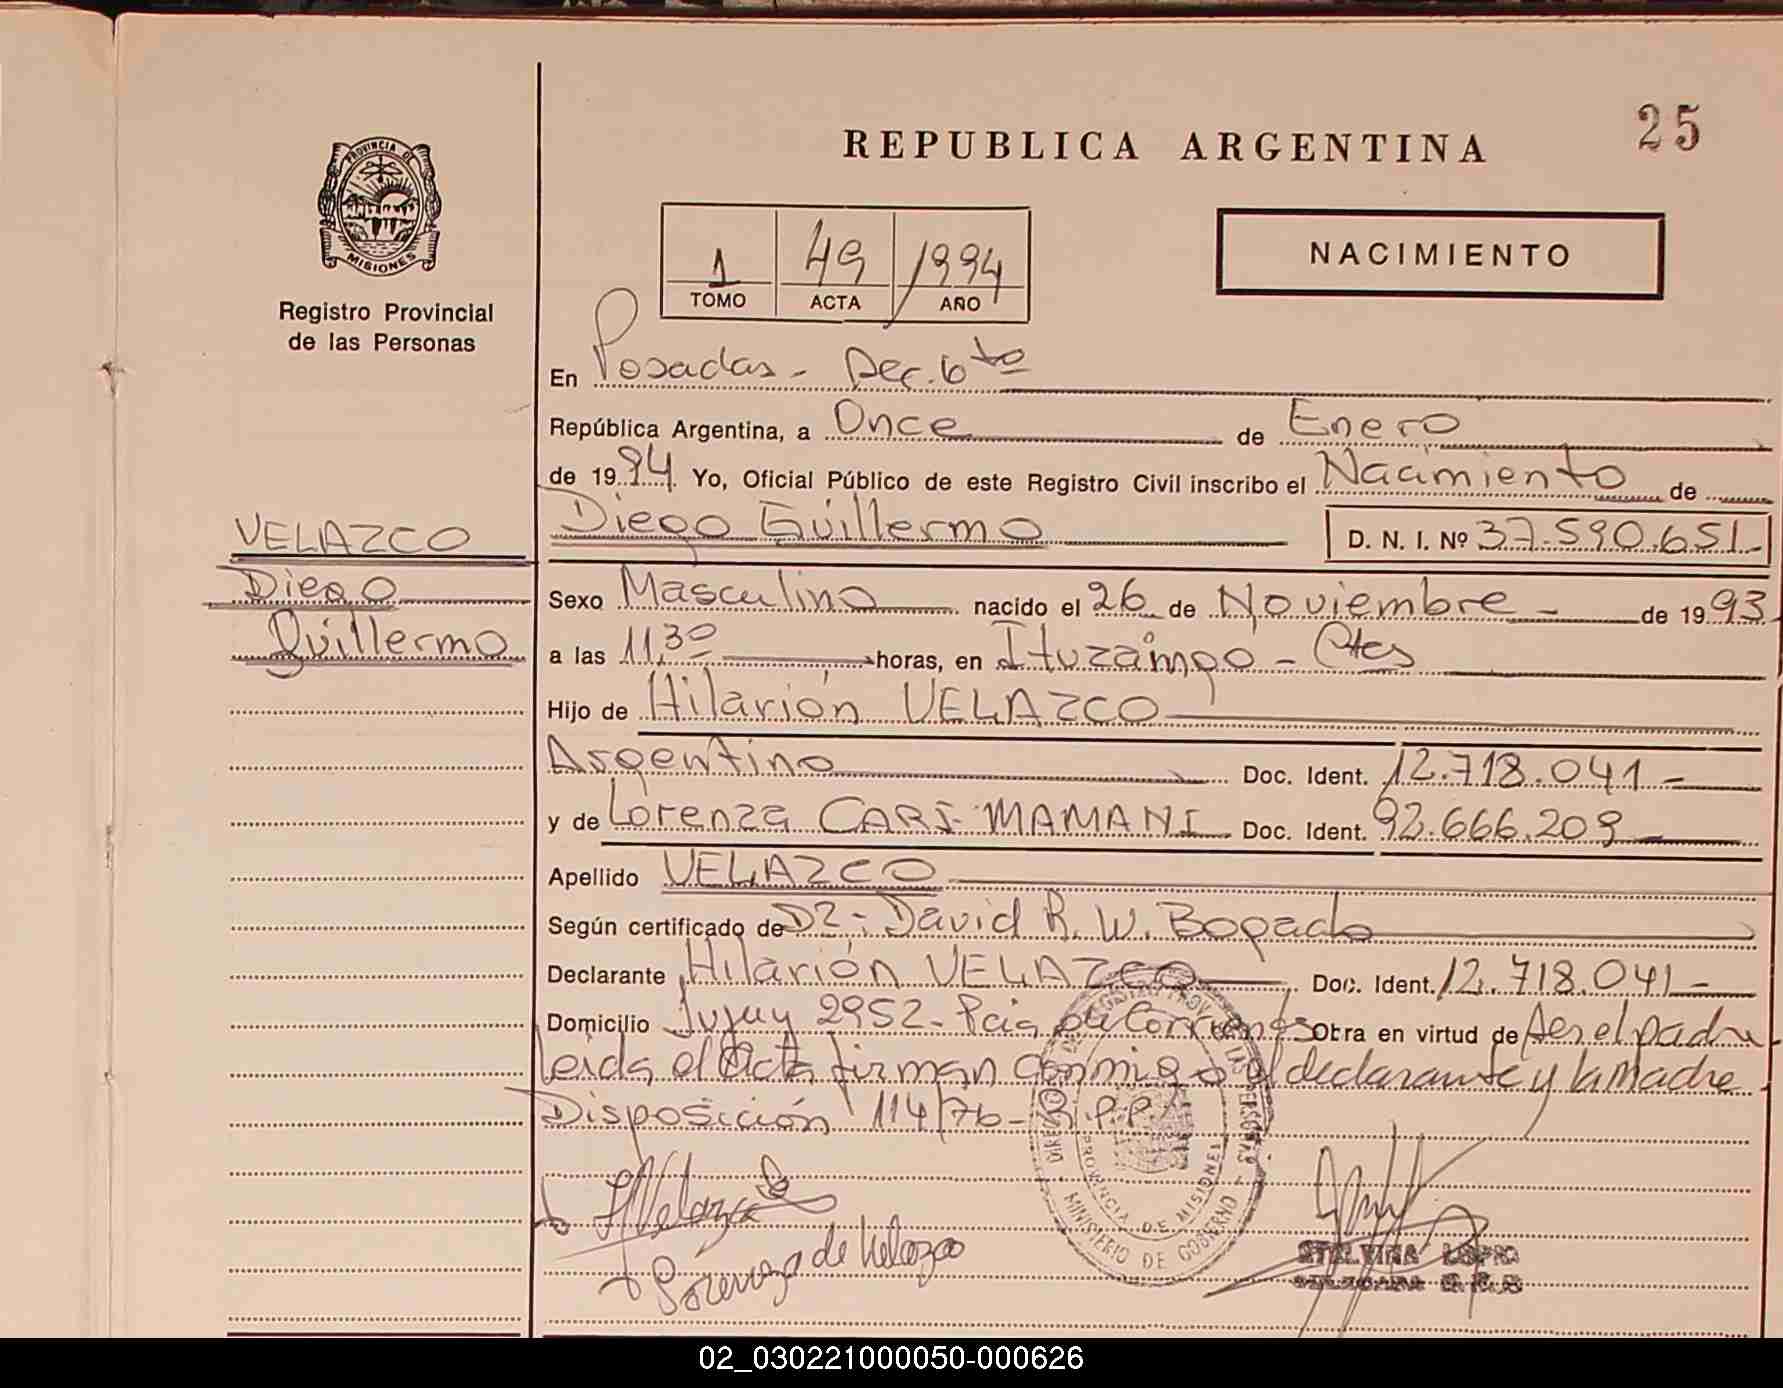 25
REPUBLICA ARGENTINA
PROVINCIA DE
MISIONES
Registro Provincial
de las Personas
1 49 1994
TOMO ACTA AÑO
NACIMIENTO
En Posadas - Dec. 6to
República Argentina, a Once de Enero
de 1994 Yo, Oficial Público de este Registro Civil inscribo el Nacimiento de
Diego Guillermo D. N. I. Nº 37.590.651-
VELAZCO
Diego
Guillermo
Sexo Masculino nacido el 26 de Noviembre - de 1993
a las 11,30 horas, en Ituzaingo - Ctes
Hijo de Hilarión VELAZCO
Argentino Doc. Ident. 12.718.041-
y de Lorenza CARI-MAMANI Doc. Ident. 92.666.209
Apellido VELAZCO
Según certificado de D2: David R. W. Bogado
Declarante Hilarión VELAZCO Doc. Ident. 12.718.041-
Domicilio Jujuy 2952- Pcia de Corrientes Obra en virtud de ser el padre
Leida el acta firman conmigo el declarante y la madre
Disposición 114/76- R.P.P.
PROVINCIA DE MISIONES
MINISTERIO DE GOBIERNO
H Velazco
Lorenza de Velazco
02_030221000050-000626